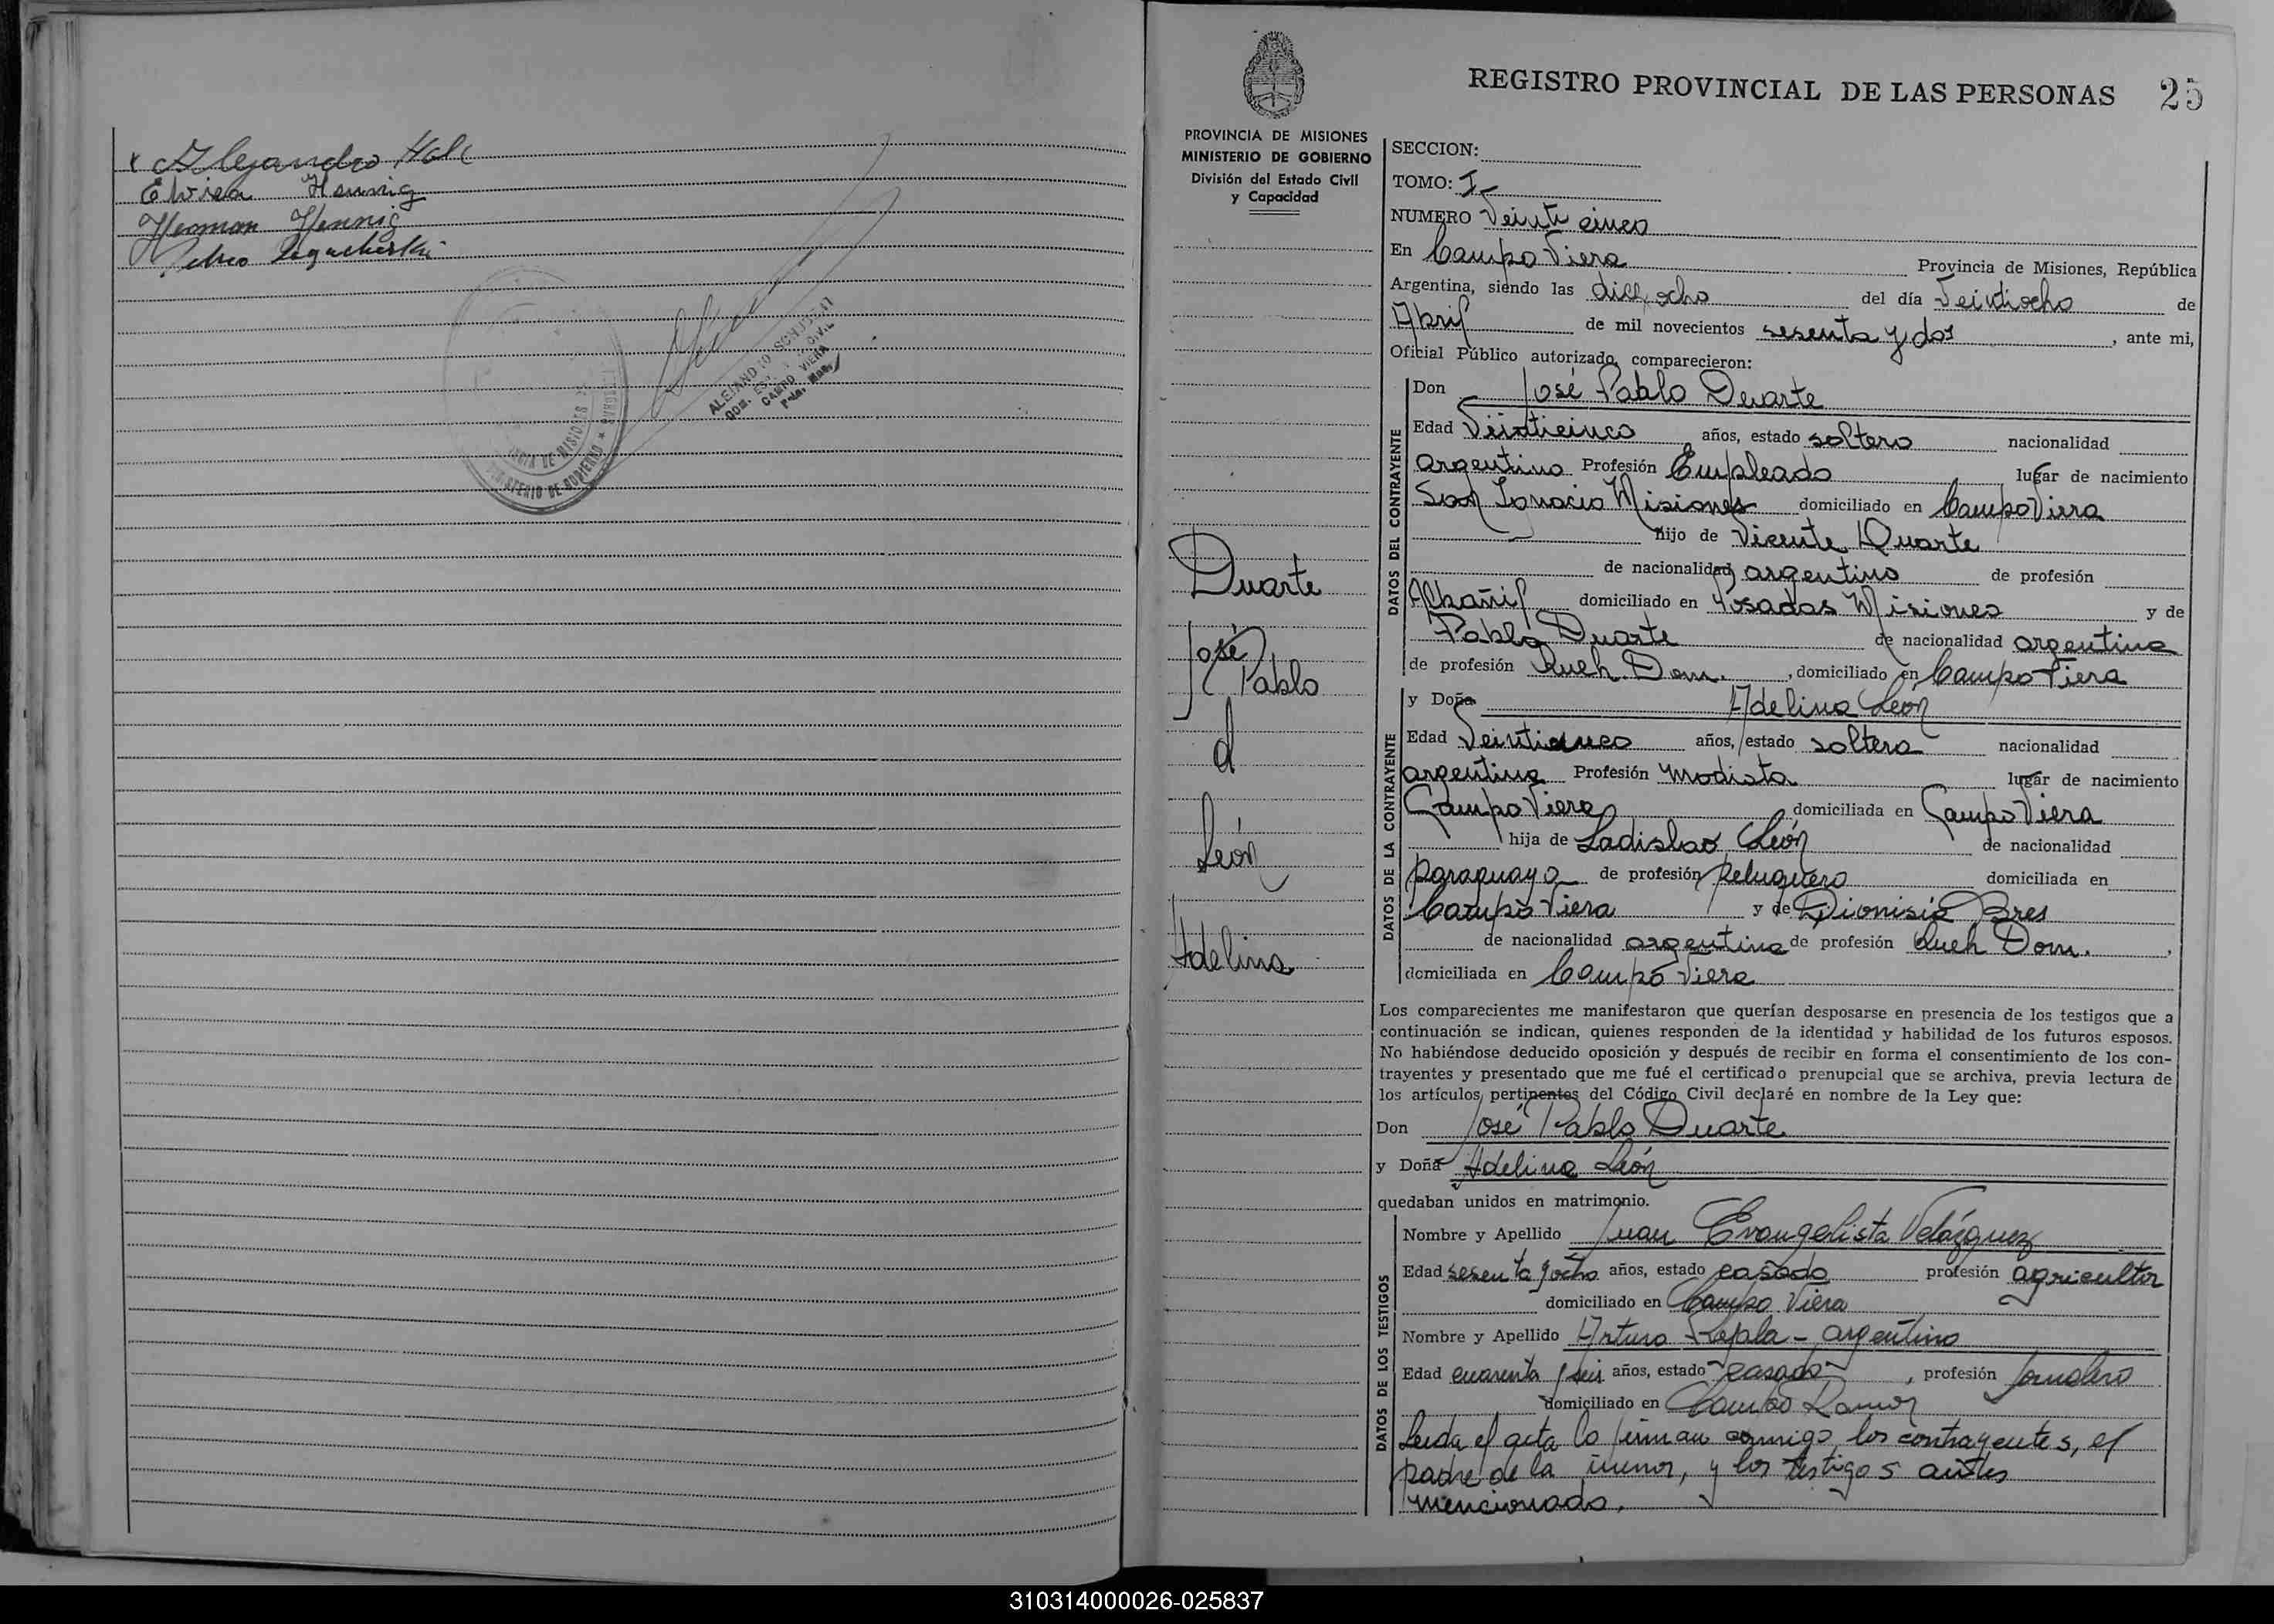 Alejandro
Elvira Hennig
Herman Hennig
Pedro
ALEJANDRO
CAMPO VIERA
MINISTERIO DE GOBIERNO
REGISTRO PROVINCIAL DE LAS PERSONAS 25
PROVINCIA DE MISIONES
MINISTERIO DE GOBIERNO
División del Estado Civil
y Capacidad
Duarte
José
Pablo
d
León
Adelina
SECCION:
TOMO: I
NUMERO Veinti cinco
En Campo Viera Provincia de Misiones, República
Argentina, siendo las dieciocho del día Veintiocho de
Abril de mil novecientos sesenta y dos, ante mi,
Oficial Público autorizado, comparecieron:
DATOS DEL CONTRAYENTE
Don José Pablo Duarte
Edad Veinticinco años, estado soltero nacionalidad
argentino Profesión Empleado lugar de nacimiento
San Ignacio Misiones domiciliado en Campo Viera
hijo de Vicente Duarte
de nacionalidad argentino de profesión
Albañil domiciliado en Posadas Misiones y de
Pabla Duarte de nacionalidad argentina
de profesión Queh. Dom., domiciliado en Campo Viera
DATOS DE LA CONTRAYENTE
y Doña Adelina León
Edad años, estado soltera nacionalidad
argentina Profesión modista lugar de nacimiento
Campo Viera domiciliada en Campo Viera
hija de Ladislao León de nacionalidad
paraguayo de profesión Peluquero domiciliada en
Campo Viera y de Dionisia Bres
de nacionalidad argentina de profesión Queh Dom.,
domiciliada en Campo Viera
Los comparecientes me manifestaron que querían desposarse en presencia de los testigos que a
continuación se indican, quienes responden de la identidad y habilidad de los futuros esposos.
No habiéndose deducido oposición y después de recibir en forma el consentimiento de los con-
trayentes y presentado que me fué el certificado prenupcial que se archiva, previa lectura de
los artículos pertinentes del Código Civil declaré en nombre de la Ley que:
Don José Pablo Duarte
y Doña Adelina León
quedaban unidos en matrimonio.
DATOS DE LOS TESTIGOS
Nombre y Apellido Juan Evangelista Velázquez
Edad sesenta y ocho años, estado casado profesión agricultor
domiciliado en Campo Viera
Nombre y Apellido Arturo - argentino
Edad cuarenta y seis años, estado casado, profesión Jornalero
domiciliado en Campo Ramón
Leida el acta la firman conmigo los contrayentes, el
padre de la menor, y los testigos antes
mencionados.
310314000026-025837